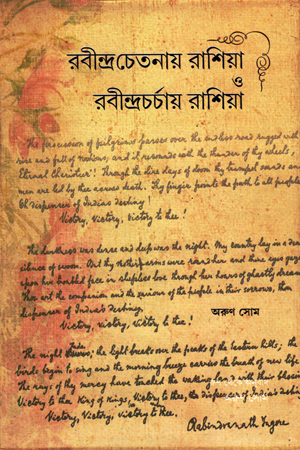 রবীন্দ্রচেতনায় রাশিয়া
ও
রবীন্দ্রচর্চায় রাশিয়া
The procession of pilgrims passes over the endless road rugged with
rise and fall of nations, and it resounds with the thunder of thy wheels,
Eternal Charioteer! Through the dire days of doom thy trumpet sounds and
men are led by thee across death. Thy finger points the path to all people,
Oh dispenser of India's destiny!
Victory, Victory, Victory to thee!
The darkness was dense and deep was the night. My country lay in a death-
silence of swoon. But thy mother arms were round her and thine eyes gazed
upon her troubled face in sleepless love through her hours of ghastly dreams.
Thou art the companion and the saviour of the people in their sorrows, thou
dispenser of India's destiny.
Victory, Victory, victory to thee!
অরুণ সোম
The night fades; the light breaks over the peaks of the Eastern hills; the
birds begin to sing and the morning breeze carries the breath of new life
The rays of thy mercy have touched the waking land with their blessings
Victory to thee King of Kings, Victory to thee, the dispenser of India's destiny
Victory, Victory, victory to thee.
Rabindranath Tagore